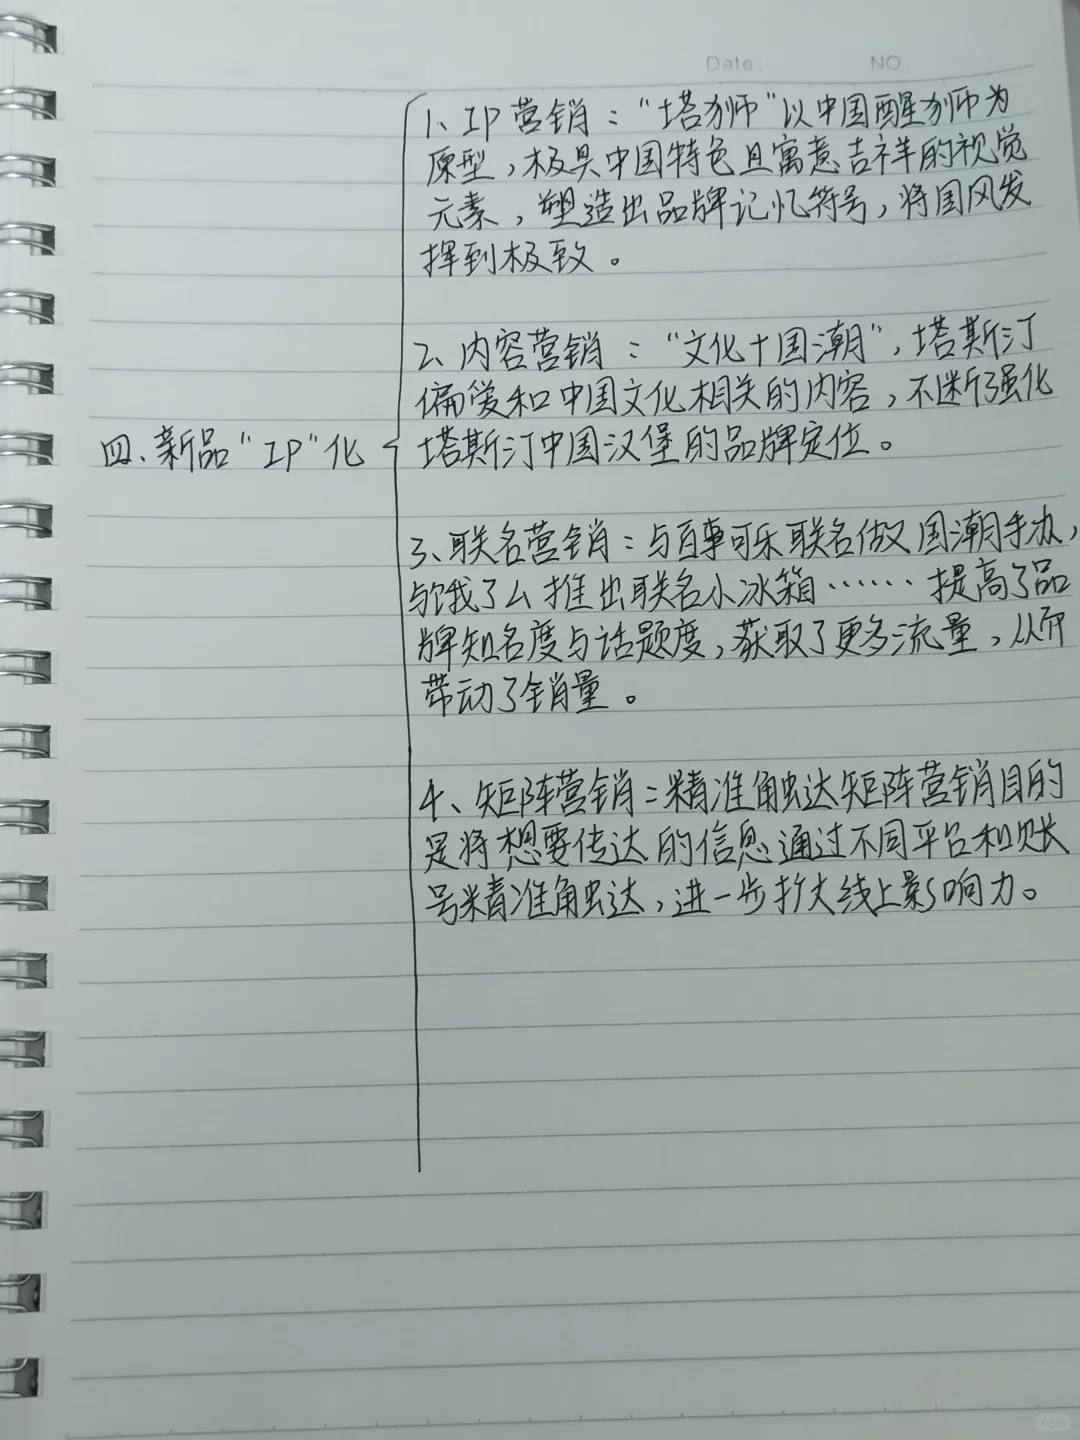 Date.
NO.
1、IP营销："塔狮"以中国醒狮为
原型，极具中国特色且寓意吉祥的视觉
元素，塑造出品牌记忆符号，将国风发
挥到极致。
2、内容营销："文化+国潮"，塔斯汀
偏爱和中国文化相关的内容，不断强化
四、新品"IP"化
塔斯汀中国汉堡的品牌定位。
3、联名营销：与百事可乐联名做国潮手办，
与饿了么推出联名小冰箱……提高了品
牌知名度与话题度，获取了更多流量，从而
带动了销量。
4、矩阵营销：精准触达矩阵营销目的
是将想要传达的信息通过不同平台和账
号精准触达，进一步扩大线上影响力。